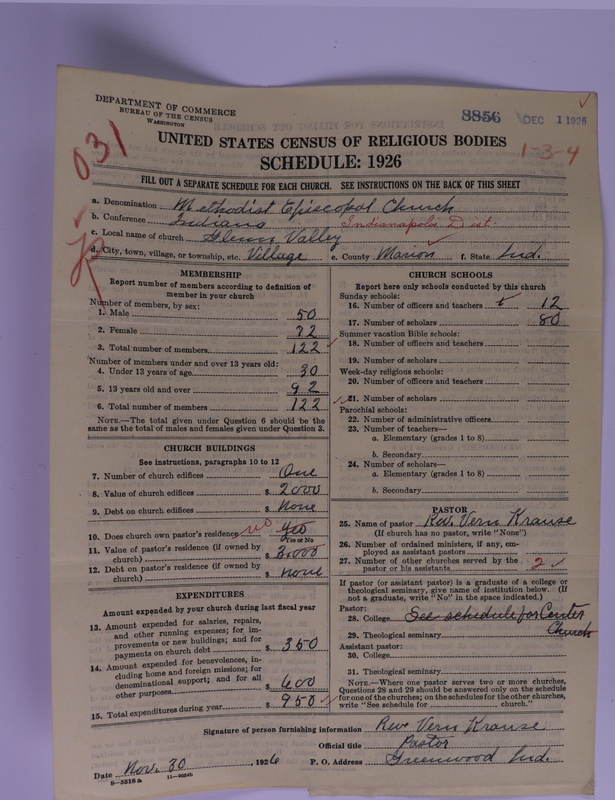 DEPARTMENT OF COMMERCE
BUREAU OF THE CENSUS
WASHINGTON
8856 DEC 1 1926
031
UNITED STATES CENSUS OF RELIGIOUS BODIES
1-3-4
SCHEDULE: 1926
FILL OUT A SEPARATE SCHEDULE FOR EACH CHURCH. SEE INSTRUCTIONS ON THE BACK OF THIS SHEET
a. Denomination Methodist Episcopal Church
b. Conference Indiana Indianapolis Dist.
c. Local name of church Glenn Valley
d. City, town, village, or township, etc. Village e. County Marion f. State Ind.
MEMBERSHIP
Report number of members according to definition of
member in your church
Number of members, by sex:
1. Male 50
2. Female 72
3. Total number of members 122
Number of members under and over 13 years old:
4. Under 13 years of age 30
5. 13 years old and over 92
6. Total number of members 122
NOTE.—The total given under Question 6 should be the
same as the total of males and females given under Question 3.
CHURCH BUILDINGS
See instructions, paragraphs 10 to 12
7. Number of church edifices One
8. Value of church edifices $ 2000
9. Debt on church edifices $ None
10. Does church own pastor's residence no yes
Yes or No
11. Value of pastor's residence (if owned by
church) $ 3000
12. Debt on pastor's residence (if owned by
church) $ none
EXPENDITURES
Amount expended by your church during last fiscal year
13. Amount expended for salaries, repairs,
and other running expenses; for im-
provements or new buildings; and for
payments on church debt $ 350
14. Amount expended for benevolences, in-
cluding home and foreign missions; for
denominational support; and for all
other purposes $ 600
15. Total expenditures during year $ 950
CHURCH SCHOOLS
Report here only schools conducted by this church
Sunday schools:
16. Number of officers and teachers 12
17. Number of scholars 80
Summer vacation Bible schools:
18. Number of officers and teachers
19. Number of scholars
Week-day religious schools:
20. Number of officers and teachers
21. Number of scholars
Parochial schools:
22. Number of administrative officers
23. Number of teachers—
a. Elementary (grades 1 to 8)
b. Secondary
24. Number of scholars—
a. Elementary (grades 1 to 8)
b. Secondary
PASTOR
25. Name of pastor Rev. Vern Krause
(If church has no pastor, write "None")
26. Number of ordained ministers, if any, em-
ployed as assistant pastors
27. Number of other churches served by the
pastor or his assistants 2
If pastor (or assistant pastor) is a graduate of a college or
theological seminary, give name of institution below. (If
not a graduate, write "No" in the space indicated.)
Pastor:
28. College See schedule for Center
29. Theological seminary Church
Assistant pastor:
30. College
31. Theological seminary
NOTE.—Where one pastor serves two or more churches,
Questions 28 and 29 should be answered only on the schedule
for one of the churches; on the schedules for the other churches,
write "See schedule for church."
Signature of person furnishing information Rev Vern Krause
Official title Pastor
Date Nov. 30, 1926 P. O. Address Greenwood Ind.